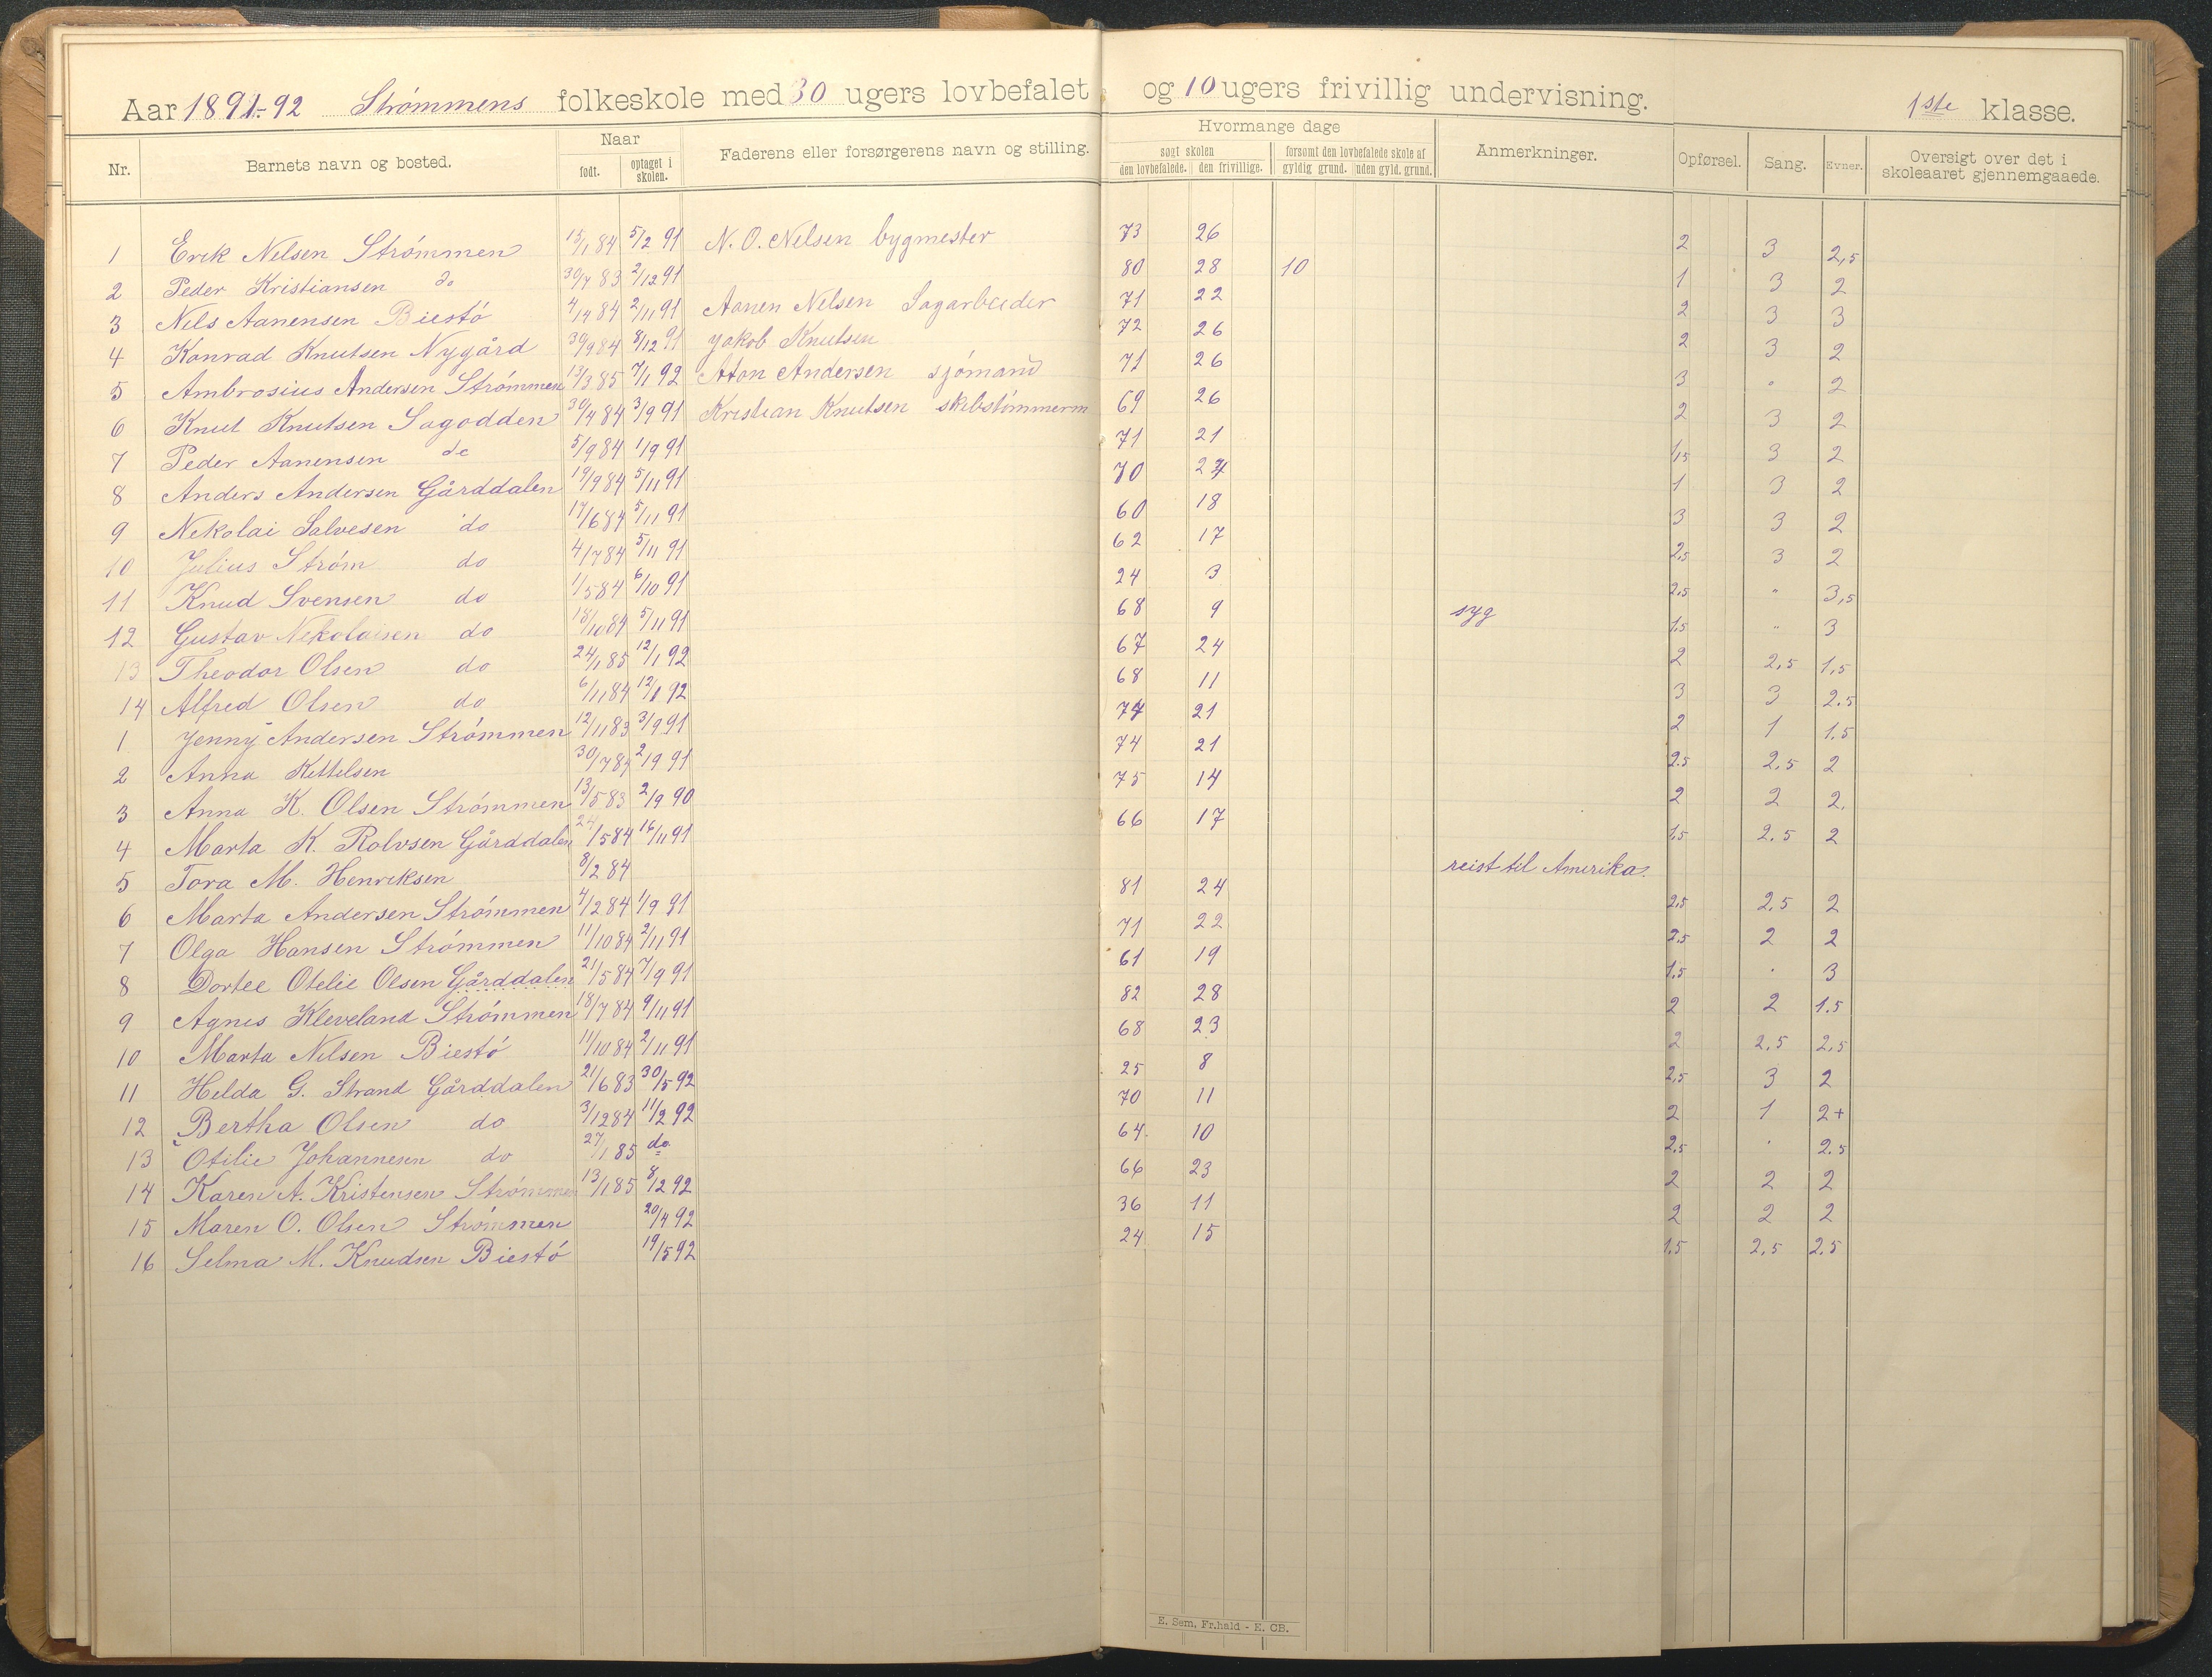 Aar 1891-92 Strömmens folkeskole med 30 ugers lovbefalet og 10 ugers frivillig undervisning. 1ste klasse.
Nr. Barnets navn og bosted. Naar født. optaget i skolen. Faderens eller forsørgerens navn og stilling. Hvormange dage søgt skolen den lovbefalede. den frivillige. forsømt den lovbefalede skole af gyldig grund. uden gyld. grund. Anmerkninger. Opførsel. Sang. Evner. Oversigt over det i skoleaaret gjennemgaaede.
1 Erik Nilsen Strömmen 15/1 84 5/2 91 N. O. Nelsen bygmester 73 26 2 3 2,5
2 Peder Kristiansen do 30/7 83 2/12 91 80 28 10 1 3 2
3 Nels Aanensen Biestö 4/14 84 2/11 91 Aanen Nelsen Sagarbeider 71 22 2 3 3
4 Konrad Knutsen Nygård 30/9 84 8/12 91 Jakob Knutsen 72 26 2 3 2
5 Ambrosius Andersen Strömmen 13/3 85 7/1 92 Aton Andersen sjömand 71 26 3 " 2
6 Knut Knutsen Sagodden 30/4 84 3/9 91 Kristian Knutsen skibstömmerm 69 26 2 3 2
7 Peder Aanensen do 5/9 84 1/9 91 71 21 1,5 3 2
8 Anders Andersen Gårddalen 19/9 84 5/11 91 70 24 1 3 2
9 Nekolai Salvesen do 17/6 84 5/11 91 60 18 3 3 2
10 Julius Ström do 4/7 84 5/11 91 62 17 2,5 3 2
11 Knud Svensen do 1/5 84 6/10 91 24 3 2,5 " 3,5
12 Gustav Nekolaisen do 18/10 84 5/11 91 68 9 syg 1,5 " 3
13 Theodor Olsen do 24/1 85 12/1 92 67 24 2 2,5 1,5
14 Alfred Olsen do 6/11 84 12/1 92 68 11 3 3 2.5
1 Jenny Andersen Strömmen 12/11 83 3/9 91 74 21 2 1 1.5
2 Anna Kettelsen 30/7 84 2/9 91 74 21 2.5 2,5 2
3 Anna K. Olsen Strömmen 13/5 83 2/9 90 75 14 2 2 2.
4 Marta K. Rolvsen Gårddalen 24/5 84 16/11 91 66 17 1,5 2.5 2
5 Tora M. Henriksen 8/2 84 reist til Amerika.
6 Marta Andersen Strömmen 4/2 84 1/9 91 81 24 2,5 2,5 2
7 Olga Hansen Strömmen 11/10 84 2/11 91 71 22 2,5 2 2
8 Dortee Otelie Olsen Gårddalen 21/5 84 7/9 91 61 19 1.5 " 3
9 Agnes Kleveland Strömmen 18/7 84 9/11 91 82 28 2 2 1.5
10 Marta Nilsen Biestö 11/10 84 2/11 91 68 23 2 2,5 2,5
11 Helda G. Strand Gårddalen 21/6 83 30/5 92 25 8 2,5 3 2
12 Bertha Olsen do 3/12 84 11/2 92 70 11 2 1 2+
13 Otilie Johannesen do 27/1 85 do 64 10 2,5 " 2.5
14 Karen A. Kristensen Strömmen 13/1 85 8/2 92 66 23 2 2 2
15 Maren O. Olsen Strömmen 20/4 92 36 11 2 2 2
16 Selma M. Knudsen Biestö 19/5 92 24 15 1.5 2,5 2.5
E. Sem, Fr.hald - E. CB.